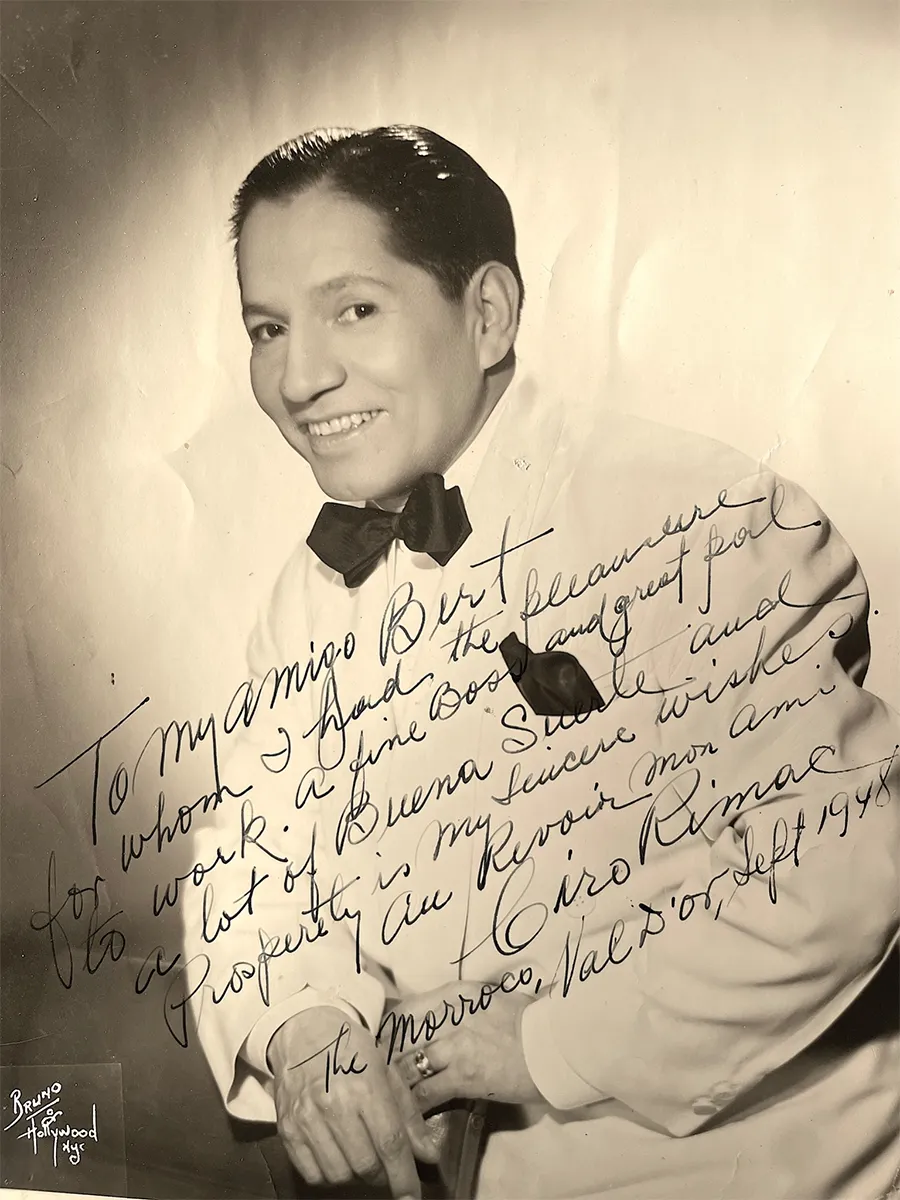 To my amigo Bert
for whom I had the pleausure
to work. a fine Boss and great pal
a lot of Buena Suerte and
Prosperety is my sincere wishes.
Au Revoir Mon Ami
Ciro Rimac
The Morroco, Val D'or, Sept 1948
BRUNO
of
Hollywood
NYC